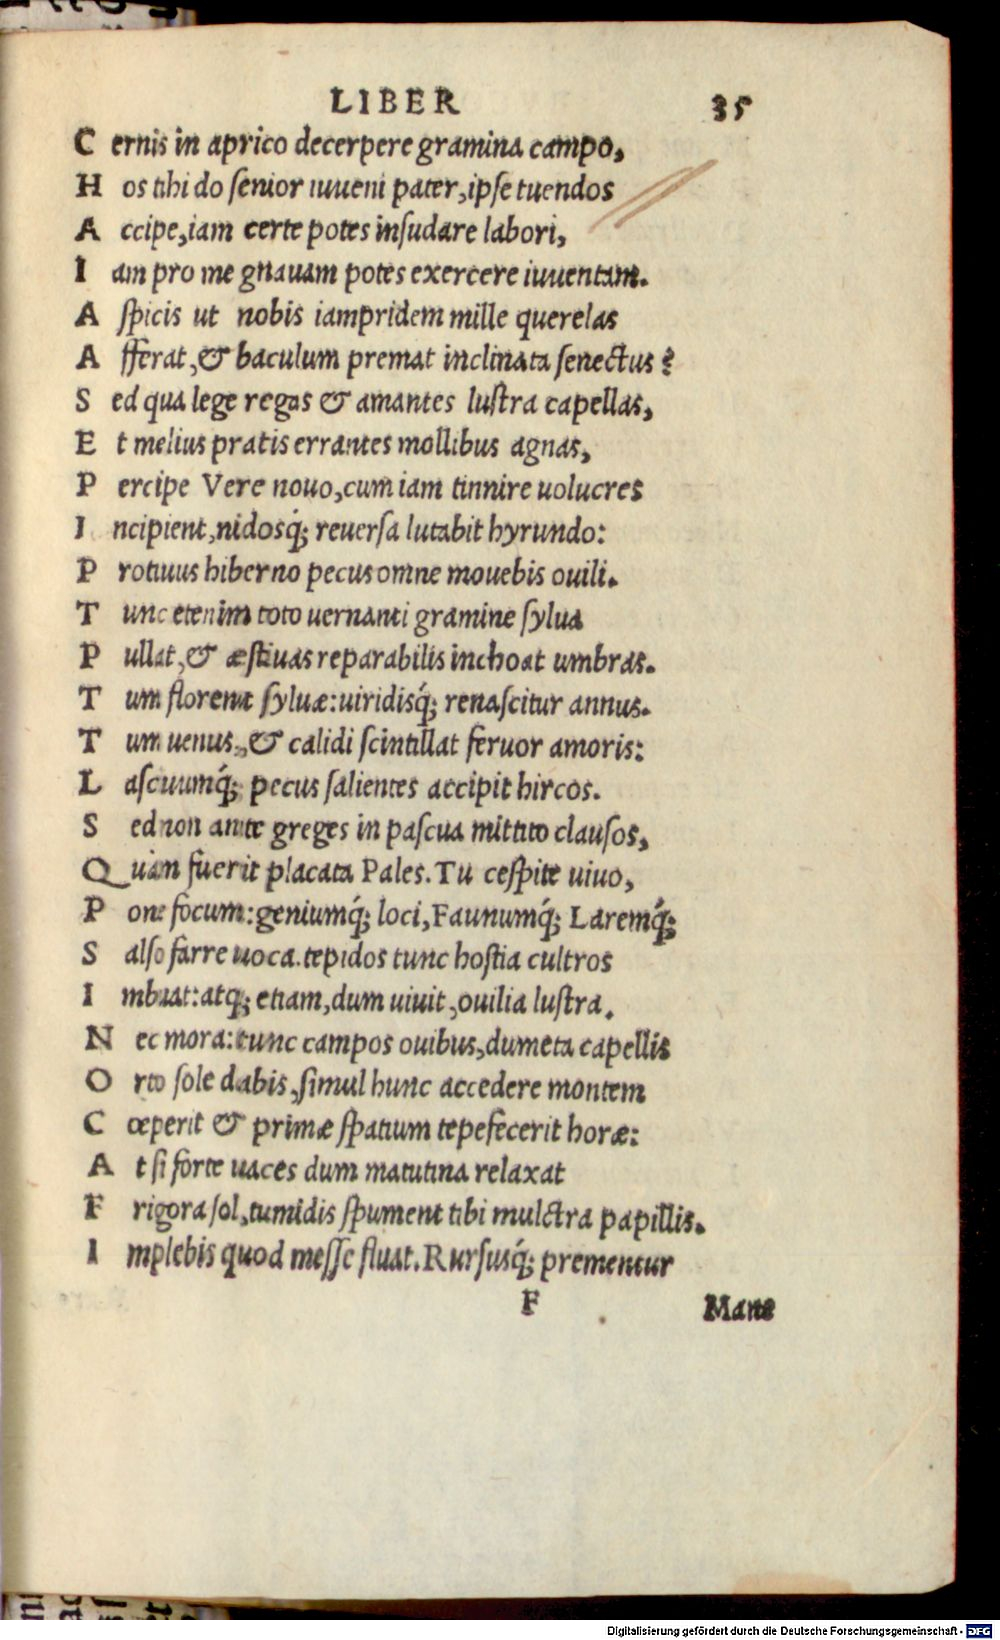 LIBER 35
C ernis in aprico decerpere gramina campo,
H os tibi do ſenior iuueni pater, ipſe tuendos
A ccipe, iam certe potes inſudare labori,
I am pro me gnauam potes exercere iuuentam.
A ſpicis ut nobis iampridem mille querelas
A fferat, & baculum premat inclinata ſenectus?
S ed qua lege regas & amantes luſtra capellas,
E t melius pratis errantes mollibus agnas,
P ercipe Vere nouo, cum iam tinnire uolucres
I ncipient, nidosq́; reuerſa lutabit hyrundo:
P rotinus hiberno pecus omne mouebis ouili.
T unc etenim toto uernanti gramine ſylua
P ullat, & æſtiuas reparabilis inchoat umbras.
T um florent ſyluæ: uiridisq́; renaſcitur annus.
T um uenus, & calidi ſcintillat feruor amoris:
L aſciuumq́; pecus ſalientes accipit hircos.
S ed non ante greges in paſcua mittito clauſos,
Q uàm fuerit placata Pales. Tu ceſpite uiuo,
P one focum: geniumq́; loci, Faunumq́; Laremq́;
S alſo farre uoca. tepidos tunc hoſtia cultros
I mbuat: atq; etiam, dum uiuit, ouilia luſtra.
N ec mora: tunc campos ouibus, dumeta capellis
O rto ſole dabis, ſimul hunc accedere montem
C œperit & primæ ſpatium tepefecerit horæ:
A t ſi forte uaces dum matutina relaxat
F rigora ſol, tumidis ſpument tibi mulctra papillis.
I mplebis quod meſſe fluat. Rursusq́; prementur
F Mane
Digitalisierung gefördert durch die Deutsche Forschungsgemeinschaft - DFG